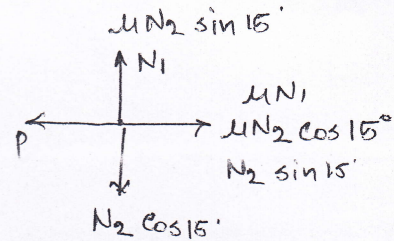 μN2 sin 15°
N1
μN1
P
μN2 cos 15°
N2 sin 15
N2 cos 15°